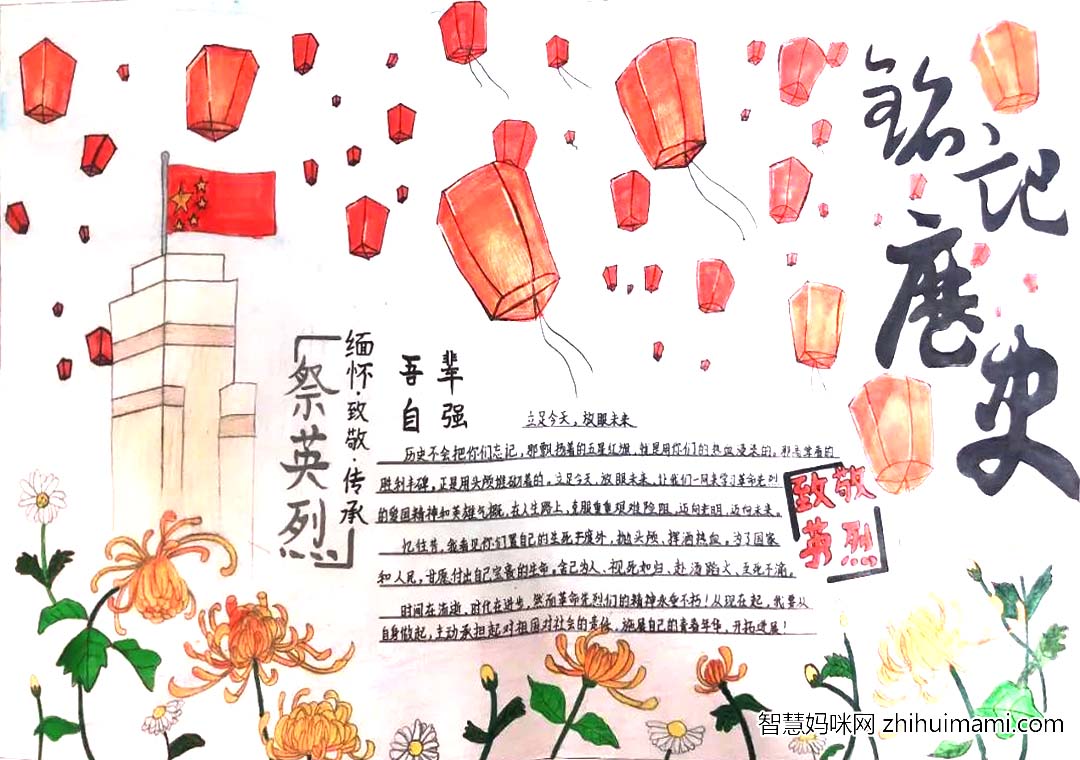 铭记历史
缅怀·致敬·传承
祭英烈
吾辈
自强
立足今天，放眼未来
历史不会把你们忘记，那飘扬着的五星红旗，就是用你们的热血浸染的。那志掌着的
胜利丰碑，正是用头颅堆砌着的。立足今天，放眼未来，让我们一同来学习革命先烈
的爱国精神和英雄气概，在人生路上，克服重重艰难险阻，迈向光明，迈向未来。
忆往昔，我看见你们置自己的生死于度外，抛头颅、挥洒热血。为了国家
和人民，甘愿付出自己宝贵的生命。舍己为人、视死如归、赴汤蹈火、至死不渝。
时间在流逝，时代在进步，然而革命先烈们的精神永垂不朽！从现在起，我要从
自身做起，主动承担起对祖国对社会的责任，施展自己的青春年华，开拓进展！
致敬
英烈
智慧妈咪网 zhihuimami.com